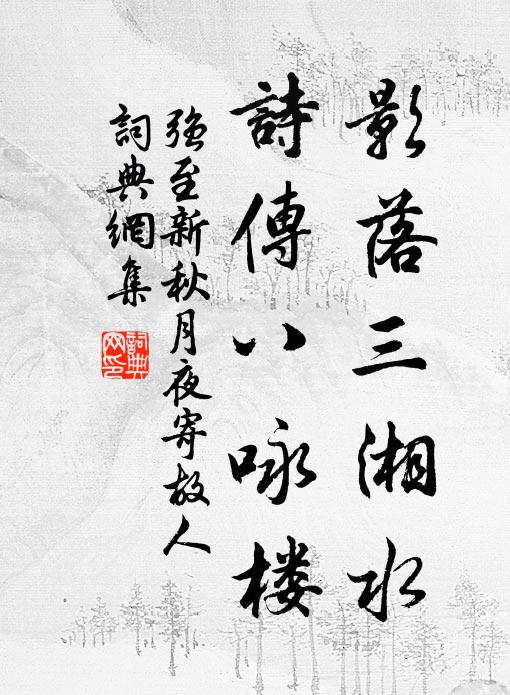 影落三湘水
詩傳八咏楼
強至新秋月夜寄故人
詞典網集
詞典
网印